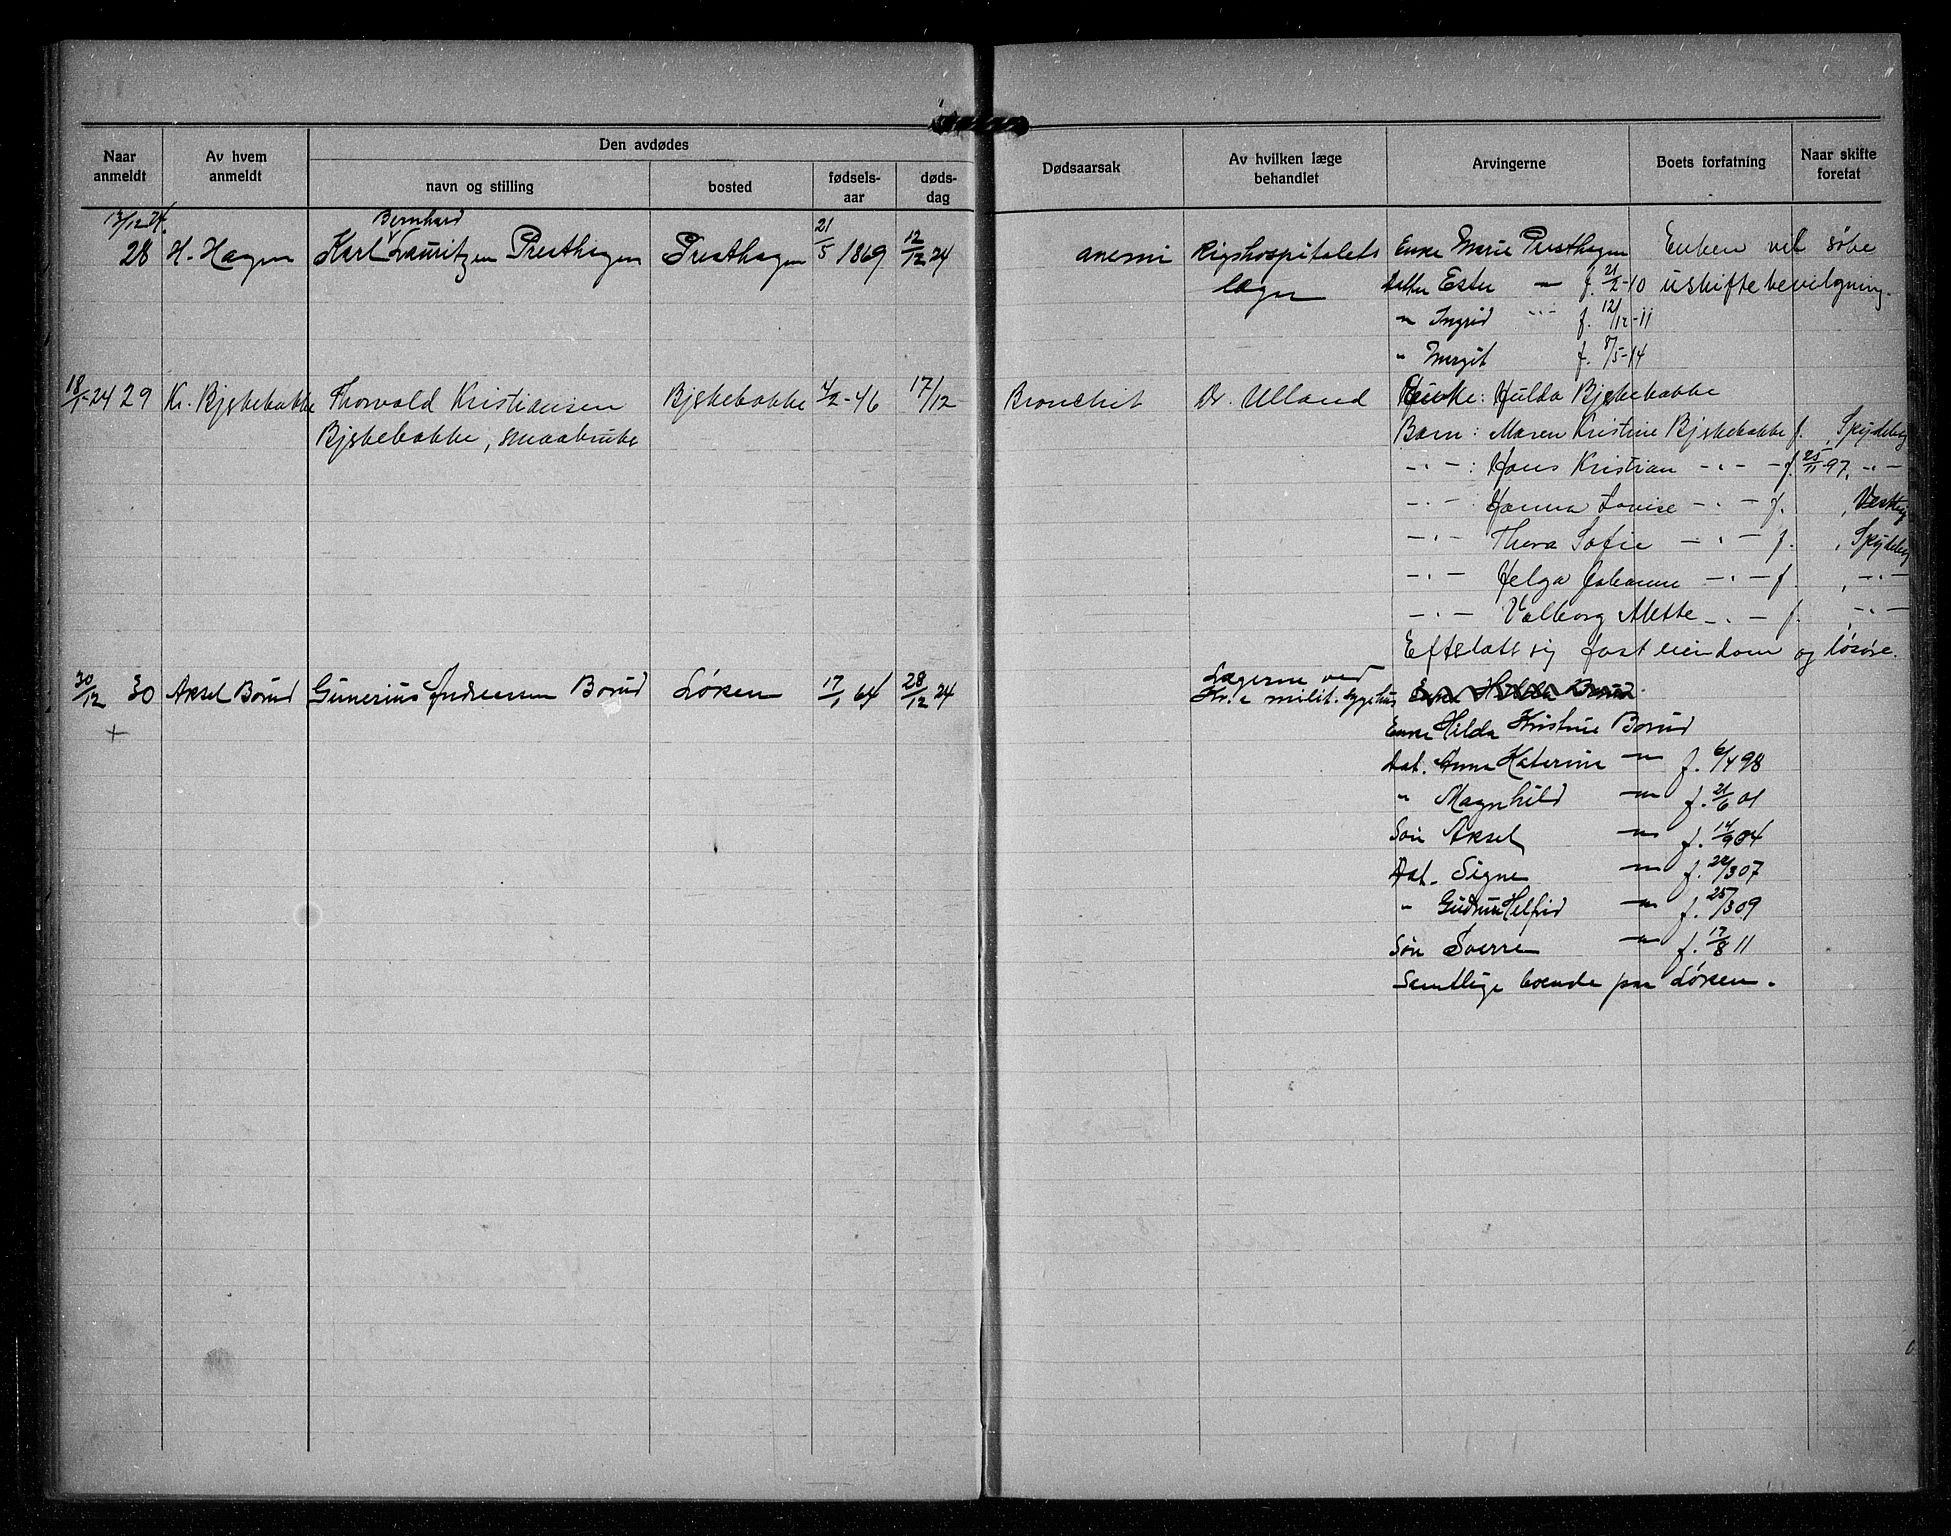 Naar anmeldt
Av hvem anmeldt
Den avdødes
navn og stilling
bosted
fødsels-aar
døds-dag
Dødsaarsak
Av hvilken læge behandlet
Arvingerne
Boets forfatning
Naar skifte foretat
13/12 24. Bernhard
28 H. Hagen Karl Lauritzen Presthagen Presthagen 21/5 1869 12/12 24 anemi Rigshospitalets Enke Marie Presthagen Enken vil søke
læger Datter Ester — f. 21/2-10 uskiftebevilgning.
" Ingrid " f. 12/12-11
" Margit f. 8/5-14
18/1-24 29 Kr. Bjekebakke Thorvald Kristiansen Bjekebakke 4/2-46 17/12 Bronchit Dr. Ulland Enke: Hulda Bjekebakke
Bjekebakke, smaabruker Barn: Maren Kristine Bjekebakke f. , Spydeberg
—"—: Hans Kristian —"— f. 25/11 97, —"—
—"— Hanna Lovise —"— f. , Vestby
—"— Thora Sofie —"— f. , Spydeberg
—"— Helga Johanne —"— f. , —"—
—"— Valborg Alette —"— f. , —"—
Efterlatt sig fast eiendom og løsøre.
30/12 30 Aksel Borud Gunerius Andreassen Borud Løken 17/1 64 28/12 24 Lægerne ved
Kr.a milit. sygehus Enke Hilda Borud.
+ Enke Hilda Kristine Borud
Dat. Anna Katerine —"— f. 6/4 98
" Magnhild —"— f. 21/6 01
Søn Aksel —"— f. 14/9 04
Dat. Signe —"— f. 22/3 07
" Gudrun Helfrid —"— f. 25/3 09
Søn Sverre —"— f. 17/8 11
Samtlige boende paa Løken.